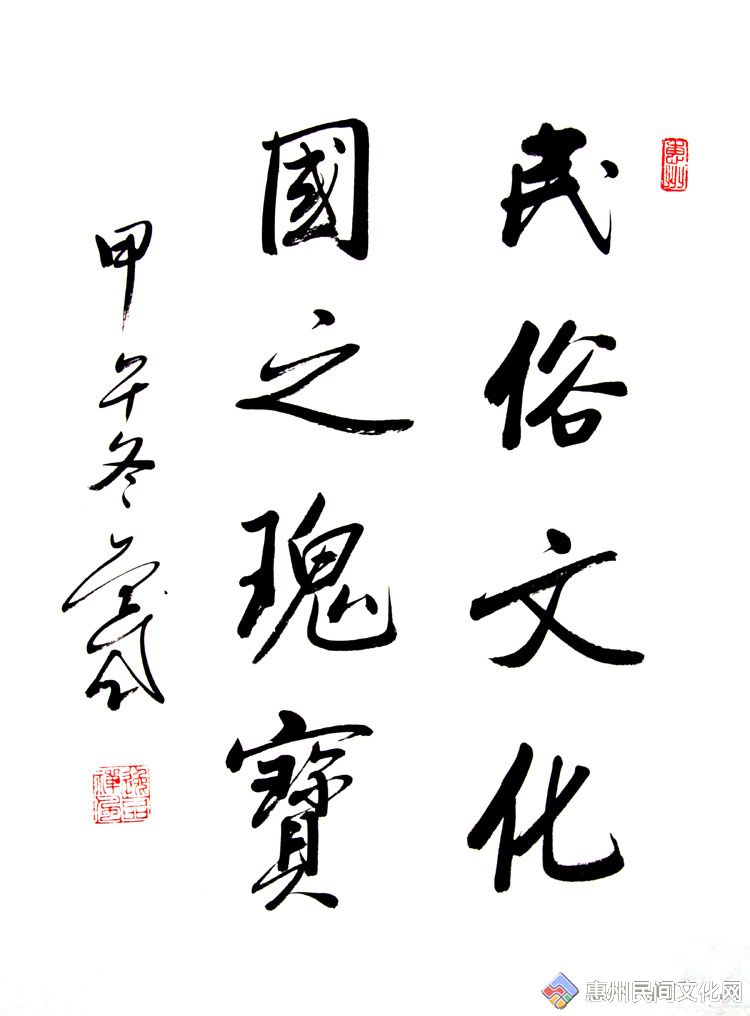 民俗文化
國之瑰寶
甲午冬
惠州
惠州民间文化网